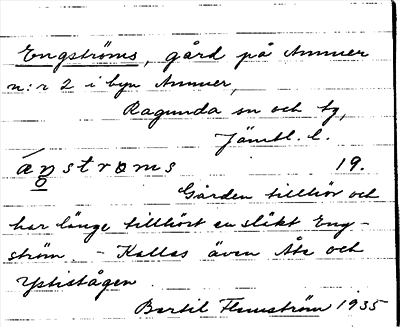 Engströms, gård på Ammer
n:r 2 i byn Ammer,
Ragunda sn och tg,
Jämtl. l.
áŋstrøms 19.
Gården tillhör och
har länge tillhört en släkt Eng-
ström. - Kallas även Åke och
Ystistågen
Bertil Flemström 1935